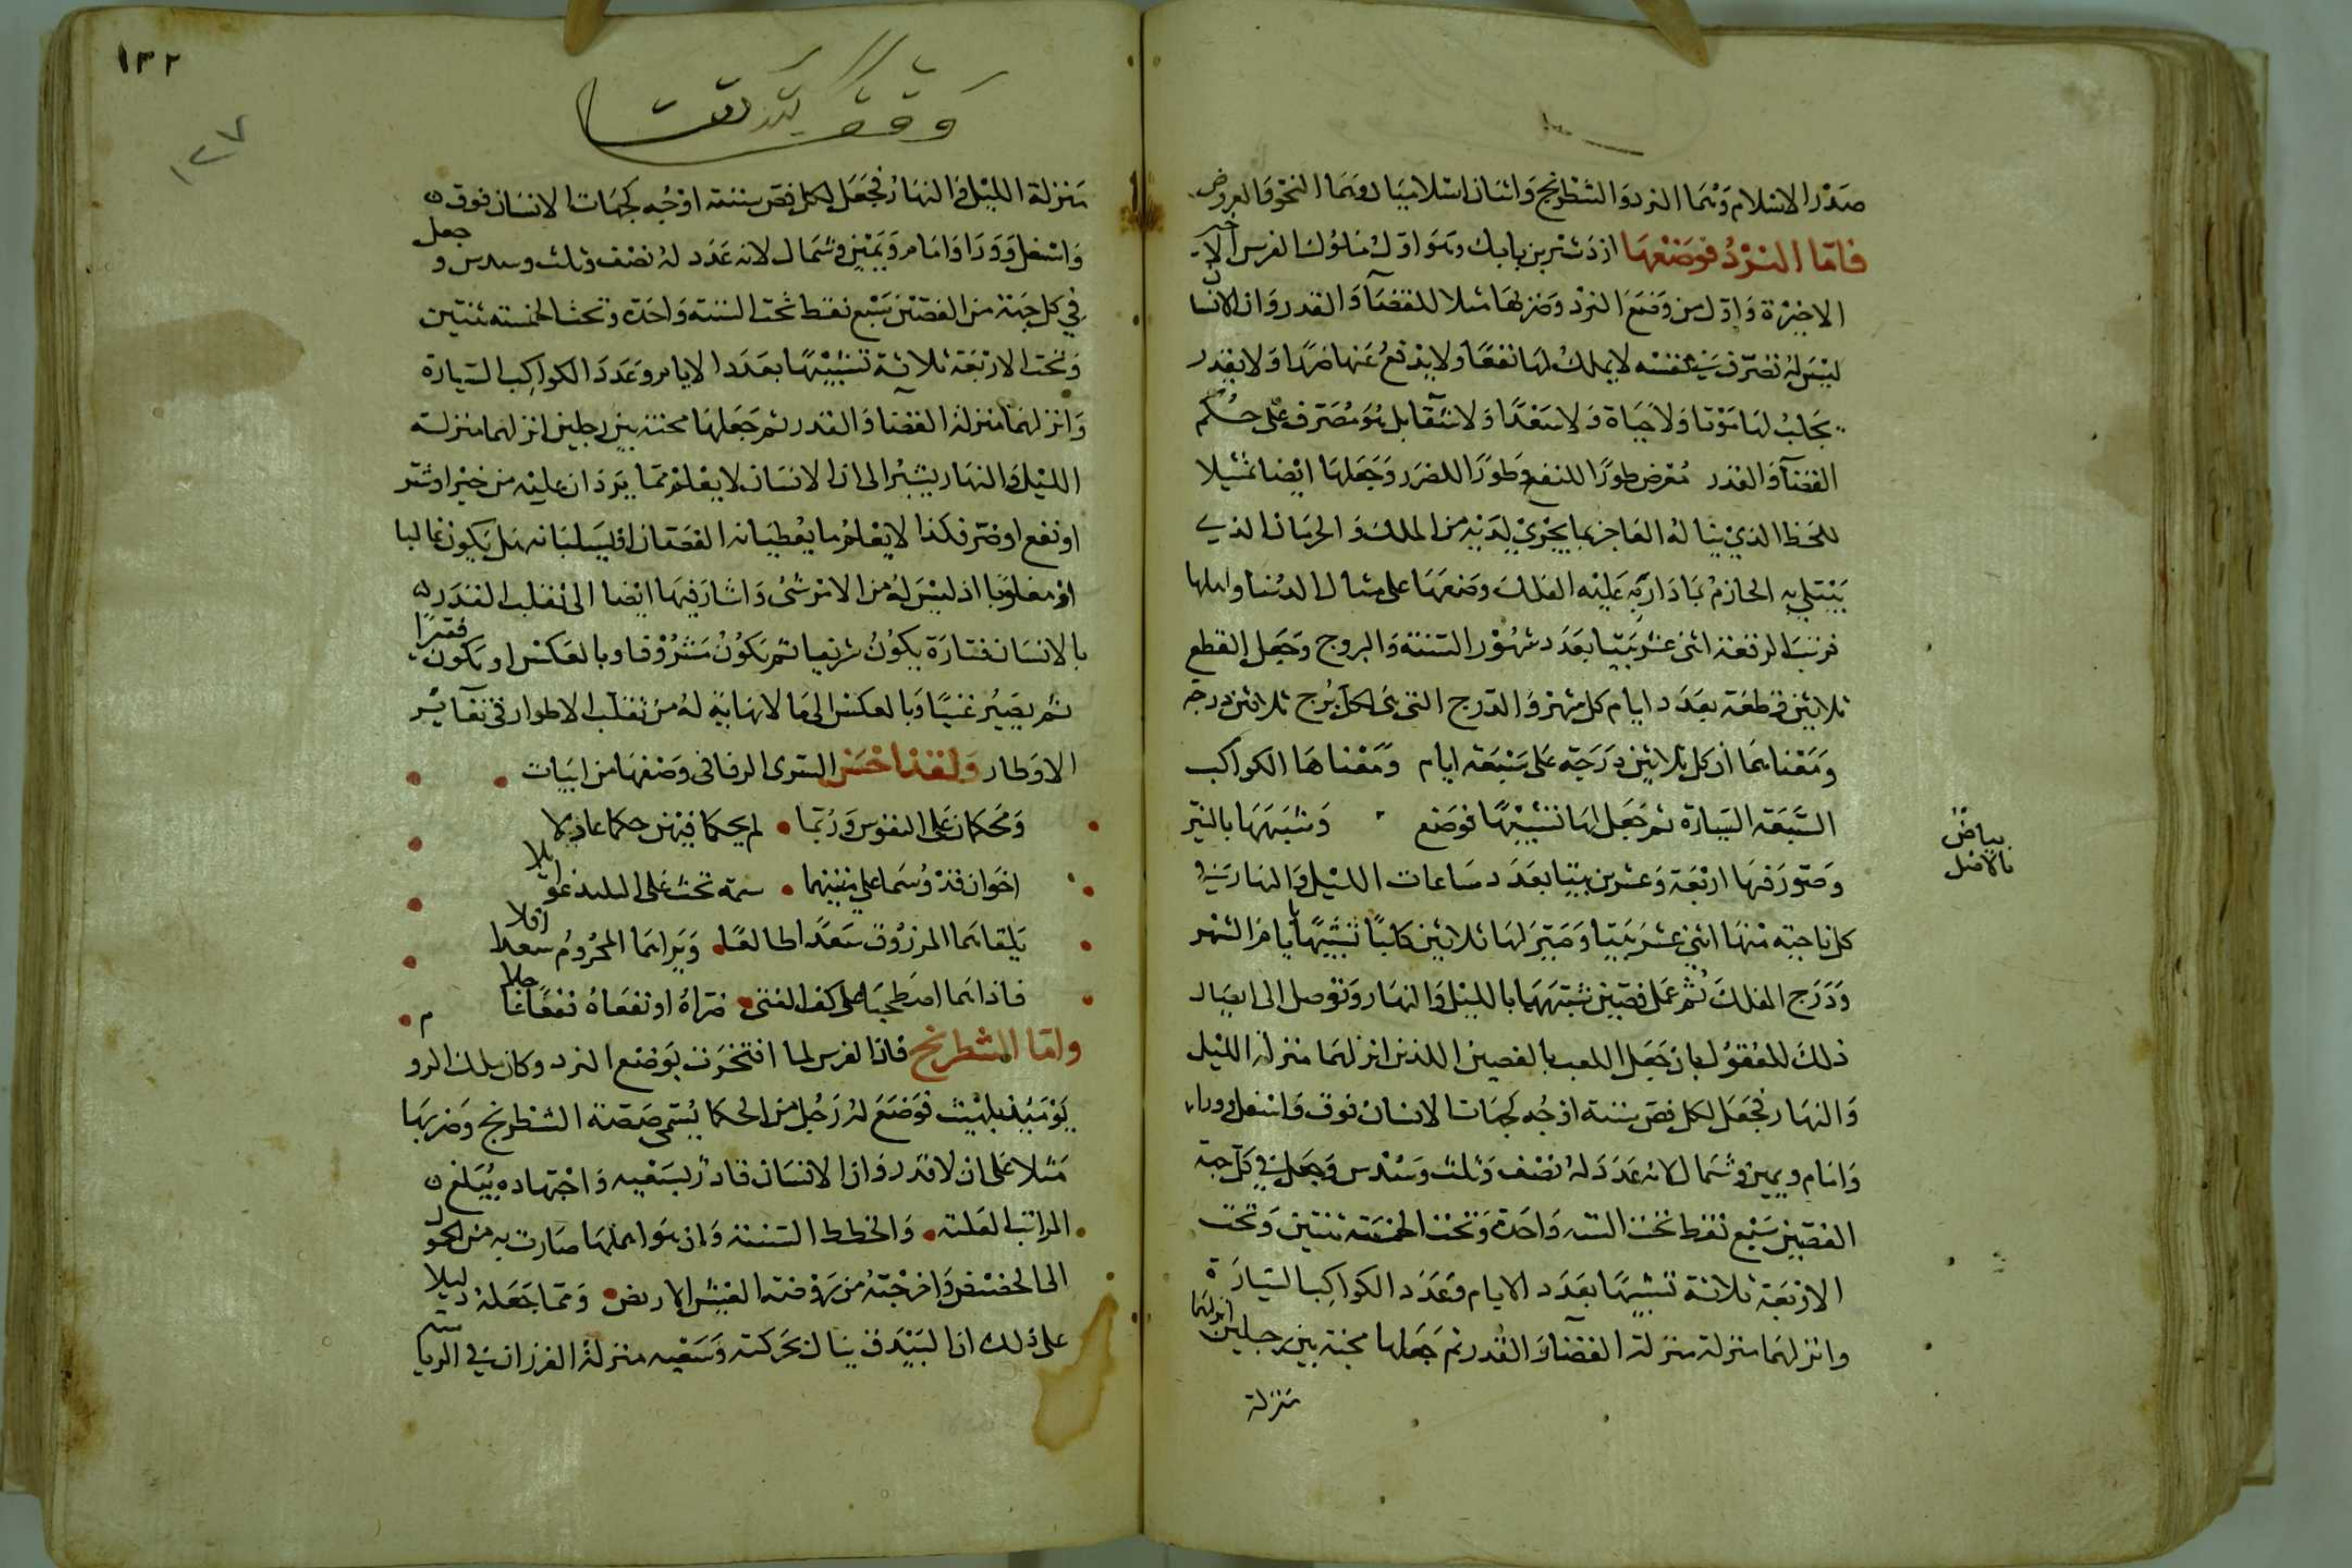 صدر الاسلام وهما النرد والشطرنج واثنان اسلاميان وهما النحو والعروض
فاما النرد فوضعها ازدشير بن بابك وهو اول ملوك الفرس
الاخيرة واول من وضع النرد وضربها مثلا للقضآ والقدر وان الانسان
ليس له تصرف في نفسه لا يملك لها نفعا ولا يدفع عنها ضرا ولا يقدر
يجلب لها موتا ولا حياة ولا سعدا ولا شقآ بل هو مصرف على حكم
القضآ والقدر معرض طورا للنفع وطورا للضرر وجعلها ايضا تمثيلا
للحظ الذي يناله العاجز بما يجري لديه من الملك والحرمان الذي
يبتلي به الحازم بما دار به عليه الفلك وضعها على مثال الدنيا واهلها
فرتب الرقعة اثنى عشر بيتا بعدد شهور السنة والبروج وجعل القطع
ثلاثين قطعة بعدد ايام كل شهر والدرج التي هي لكل برج ثلاثين درجة
ومعناهما ان كل ثلاثين درجة على سبعة ايام ومعناها الكواكب
السبعة السيارة ثم جعل لها تشبيها فوضع وشبهها بالنير
بياض
بالاصل
وصور فيها اربعة وعشرين بيتا بعدد ساعات الليل والنهار في
كل ناحية منها اثني عشر بيتا وصير لها ثلاثين كلبا تشبيها بايام الشهر
ودرج الفلك ثم عمل فصين شبههما بالليل والنهار وتوصل الى ايصال
ذلك للعقول بان جعل اللعب بالفصين اللذين انزلهما منزلة الليل
والنهار فجعل لكل فص ستة اوجه كجهات الانسان فوق واسفل ووراء
وامام ويمين وشمال لانه عدد له نصف وثلث وسدس وجعل في كل جهة
الفصين سبع نقط تحت الستة واحدة وتحت الخمسة ثنتين وتحت
الاربعة ثلاثة تشبيها بعدد الايام وعدد الكواكب السيارة
وانزلهما منزلة منزلة القضآ والقدر ثم جعلها محنة بين رجلين انزلهما
منزلة
١٣٢
١٢٧
وقف
منزلة الليل والنهار فجعل لكل فص ستة اوجه كجهات الانسان فوق
واسفل وورا وامام ويمين وشمال لانه عدد له نصف وثلث وسدس وجعل
في كل جهة من الفصين سبع نقط تحت الستة واحدة وتحت الخمسة ثنتين
وتحت الاربعة ثلاثة تشبيها بعدد الايام وعدد الكواكب السيارة
وانزلهما منزلة القضآ والقدر ثم جعلها محنة بين رجلين انزلهما منزلة
الليل والنهار يشير الى ان الانسان لا يعلم مما يرد ان عليه من خير او شر
او نفع او ضر فكذا لا يعلم ما يعطيانه الفصان او يسلبانه هل يكون غالبا
او مغلوبا اذ ليس له من الامر شى واشار فيها ايضا الى تقلب القدر
بالانسان فتارة يكون شريفا ثم يكون مشروفا وبالعكس او يكون فقيرا
ثم يصير غنيا وبالعكس الى ما لا نهاية له من تقلب الاطوار في
الاوطار ولقد احسن السرى الرفا في وصفها من ابيات
ومحكمان على النفوس وربما لم يحكما فيهن حكما عادلا
اخوان قد وسما على متنيهما سمة تحث على البليد
يلقاهما المرزوق سعدا طالعا ويراهما المحروم سعدا افلا
فاذا هما اصطحبا على كف الفتى ضراه او نفعاه نفعا
واما الشطرنج فان الفرس لما افتخرت بوضع النرد وكان ملك الروم
يومئذ بلهيث فوضع له رجل من الحكما يسمى صصه الشطرنج وضربها
مثلا على ان لا قدر وان الانسان قادر بسعيه واجتهاده يبلغ
المراتب العلية والخطط السنية وان هو اهملها صارت به من
الى الحضيض واخرجته من روضة العيش الاريض ومما جعله دليلا
على ذلك ان البيدق ينال بحركته وسعيه منزلة الفرزان في الرياسة